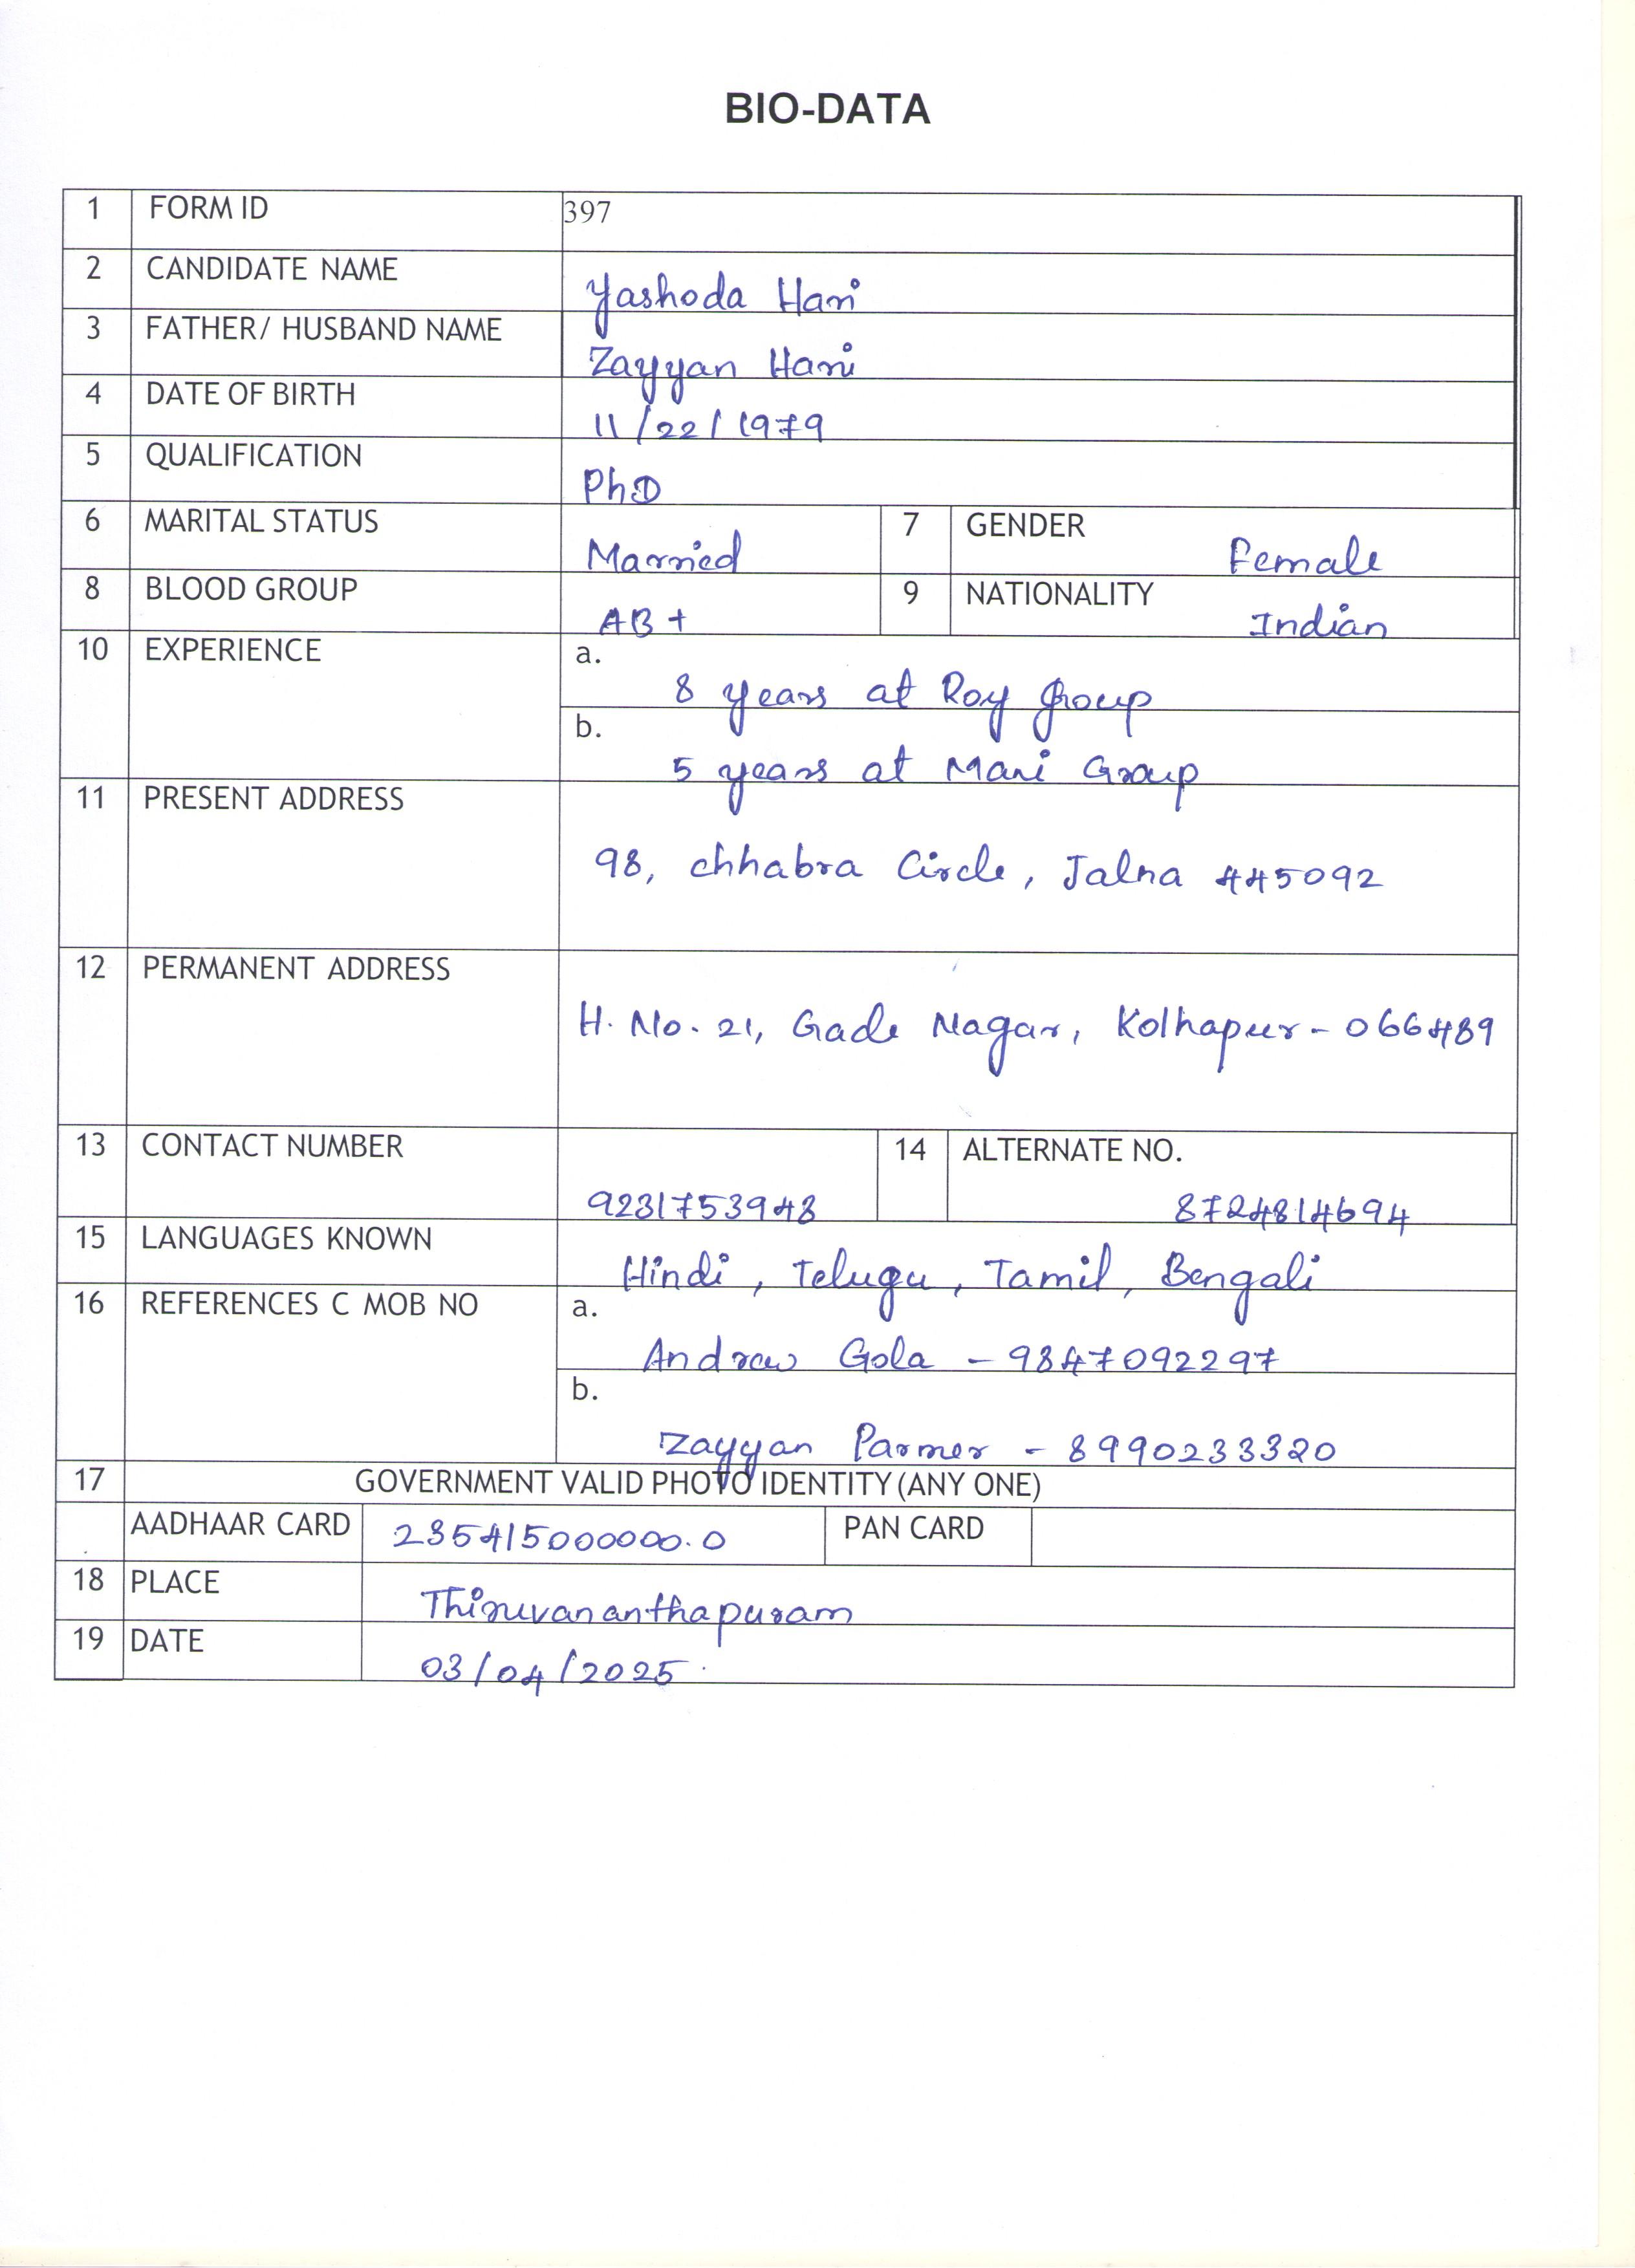 BIO-DATA
1 FORM ID 397
2 CANDIDATE NAME Yashoda Hari
3 FATHER/ HUSBAND NAME Zayyan Hari
4 DATE OF BIRTH 11/22/1979
5 QUALIFICATION PhD
6 MARITAL STATUS Married 7 GENDER Female
8 BLOOD GROUP AB+ 9 NATIONALITY Indian
10 EXPERIENCE a. 8 years at Roy Group
b. 5 years at Mani Group
11 PRESENT ADDRESS
98, chhabra Circle, Jalna 445092
12 PERMANENT ADDRESS
H. No. 21, Gade Nagar, Kolhapur - 066489
13 CONTACT NUMBER 9231753948 14 ALTERNATE NO. 8724814694
15 LANGUAGES KNOWN Hindi, Telugu, Tamil, Bengali
16 REFERENCES C MOB NO a. Andrew Gola - 9847092297
b. Zayyan Parmer - 8990233320
17 GOVERNMENT VALID PHOTO IDENTITY (ANY ONE)
AADHAAR CARD 235415000000.0 PAN CARD
18 PLACE Thiruvananthapuram
19 DATE 03/04/2025